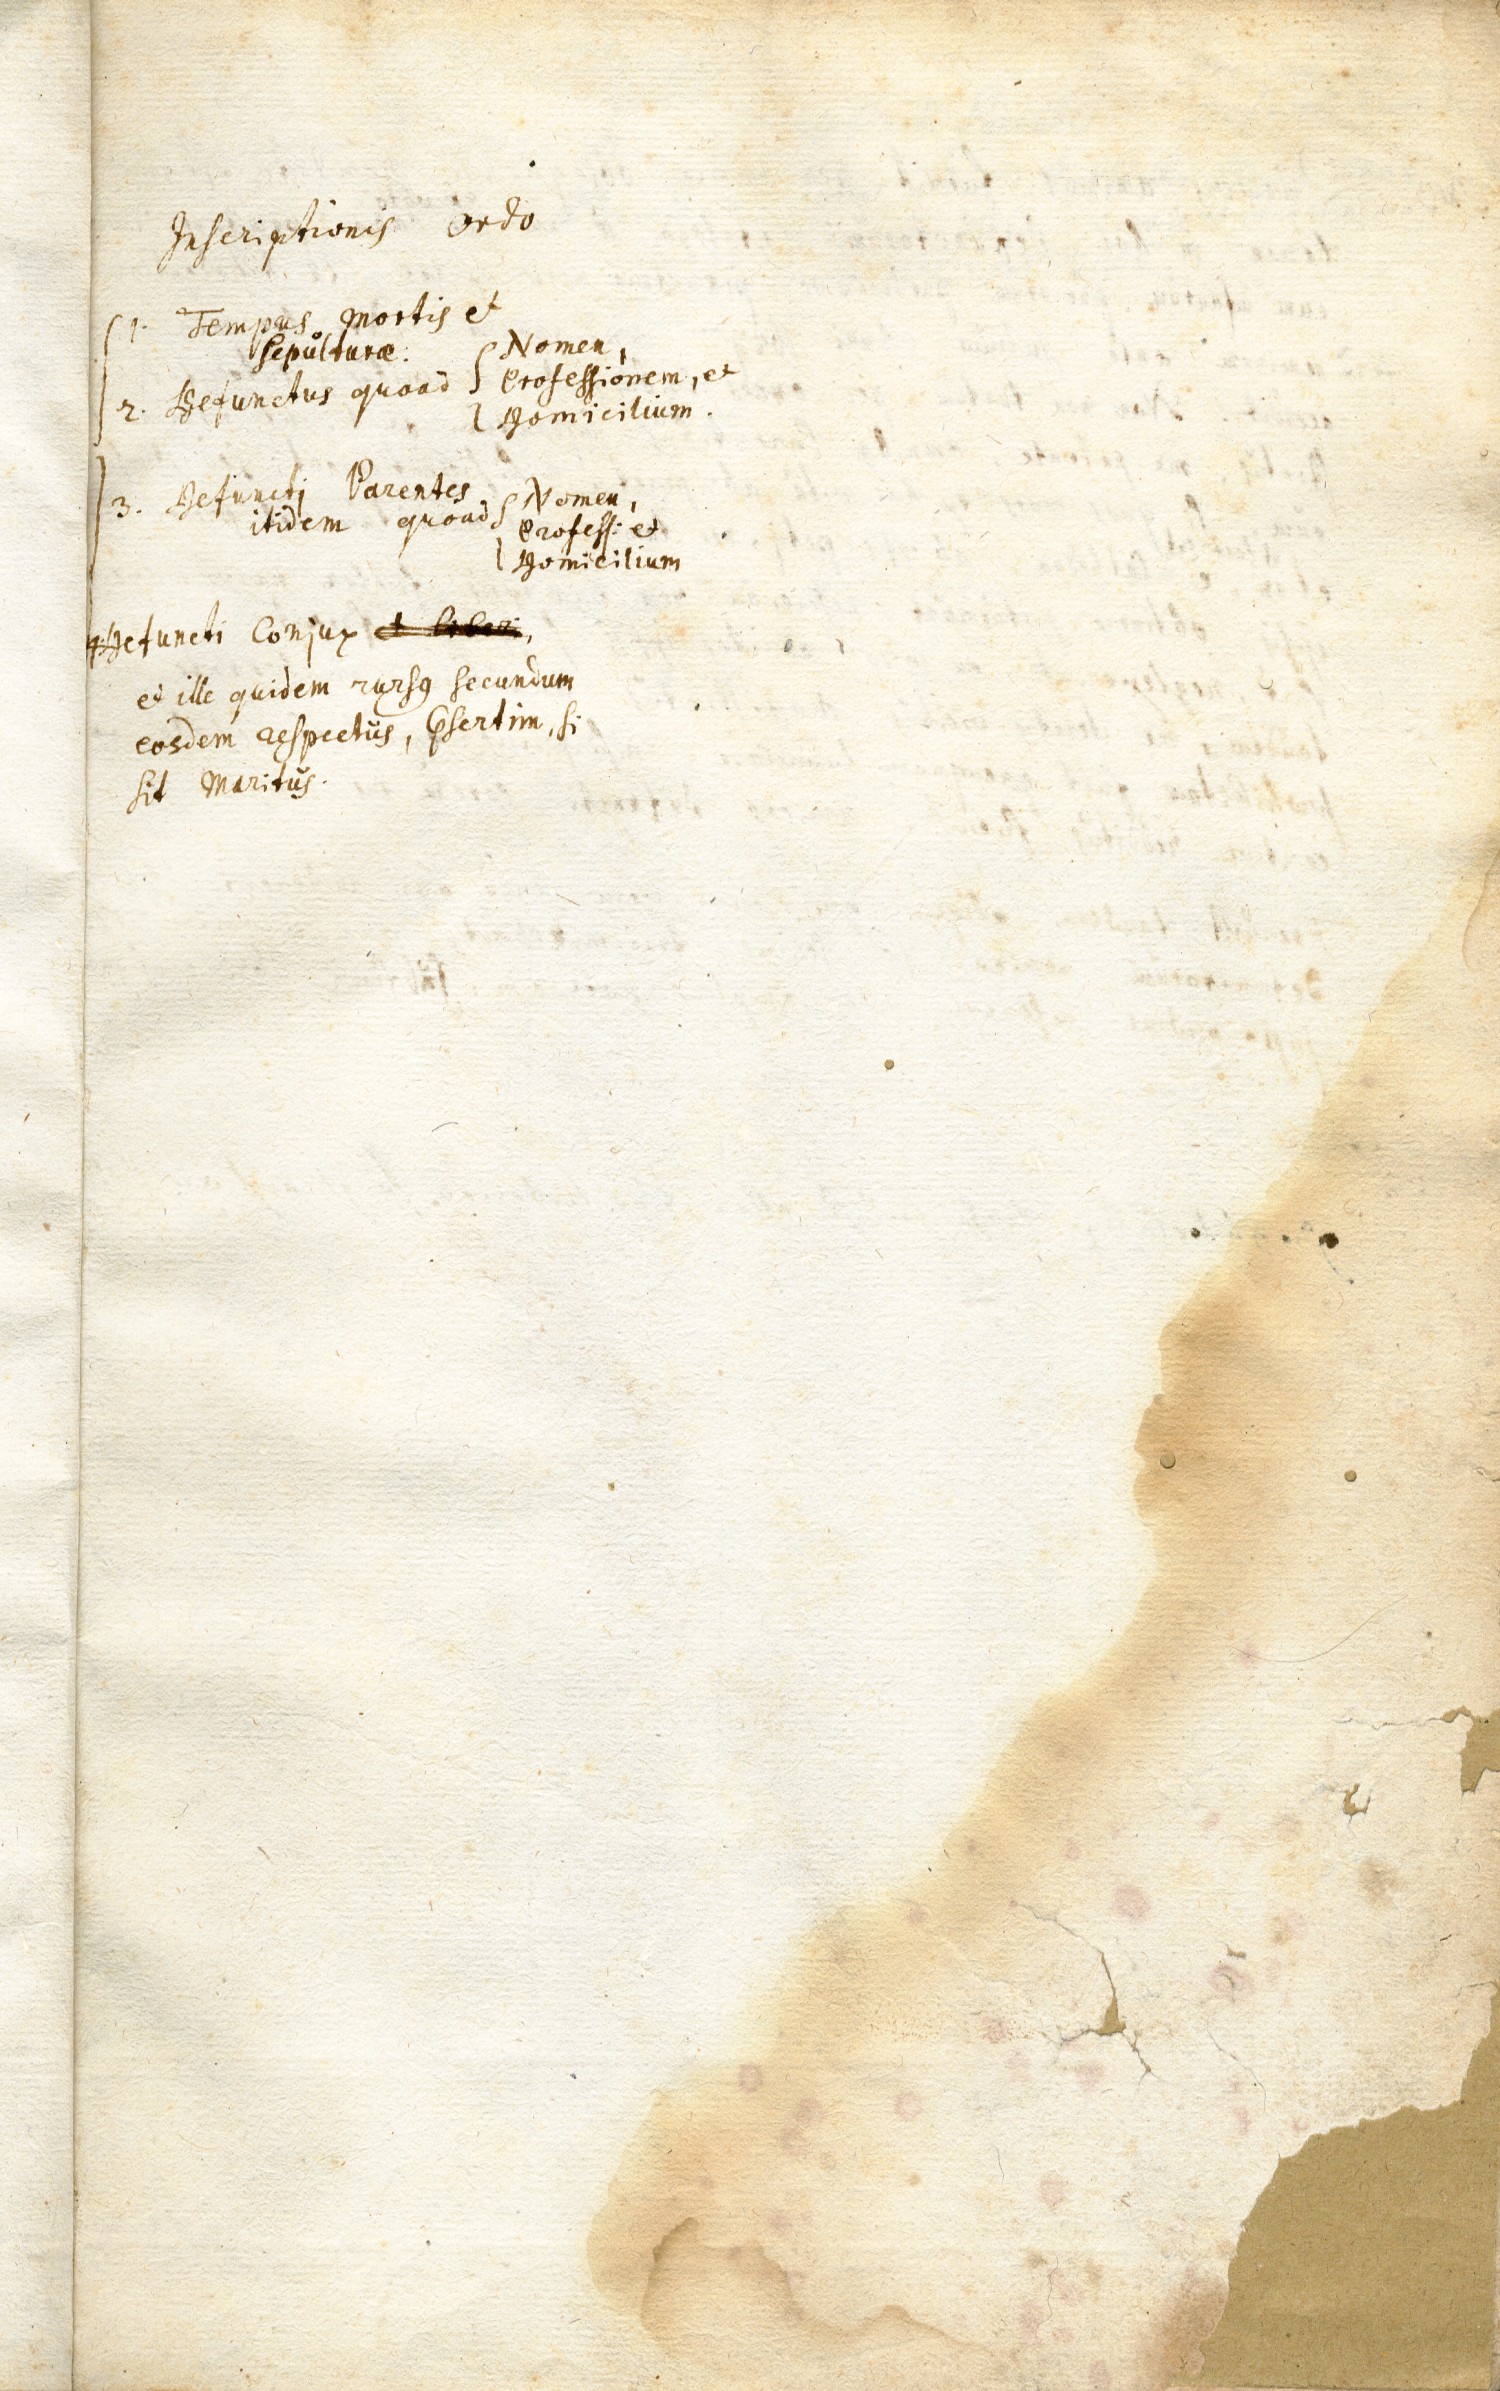 Inscriptionis Ordo
1. Tempus Mortis et
Sepulturæ.
2. Defunctus quoad
Nomen,
Professionem, et
Domicilium.
3. Defuncti Parentes
itidem quoad
Nomen,
Profess: et
Domicilium
4. Defuncti Conjux et liberi,
et ille quidem rursꝰ secundum
eosdem respectus, Psertim, si
sit Maritus.